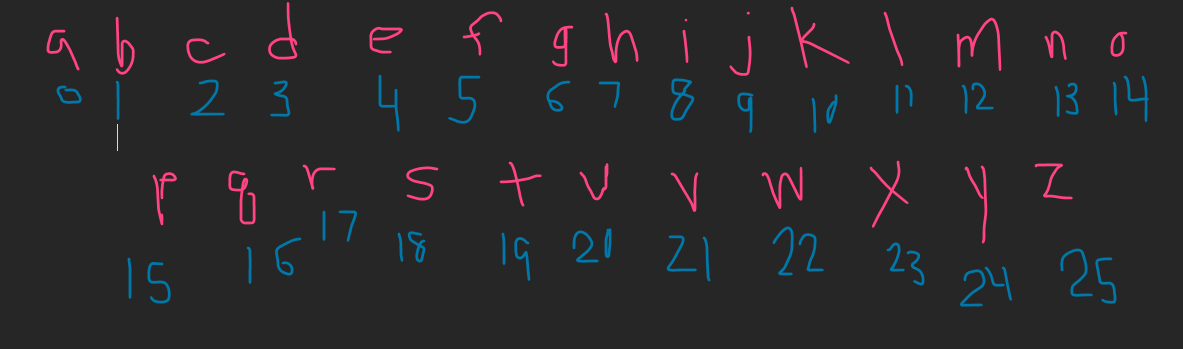 a b c d e f g h i j k l m n o
0 1 2 3 4 5 6 7 8 9 10 11 12 13 14
p q r s t u v w x y z
15 16 17 18 19 20 21 22 23 24 25